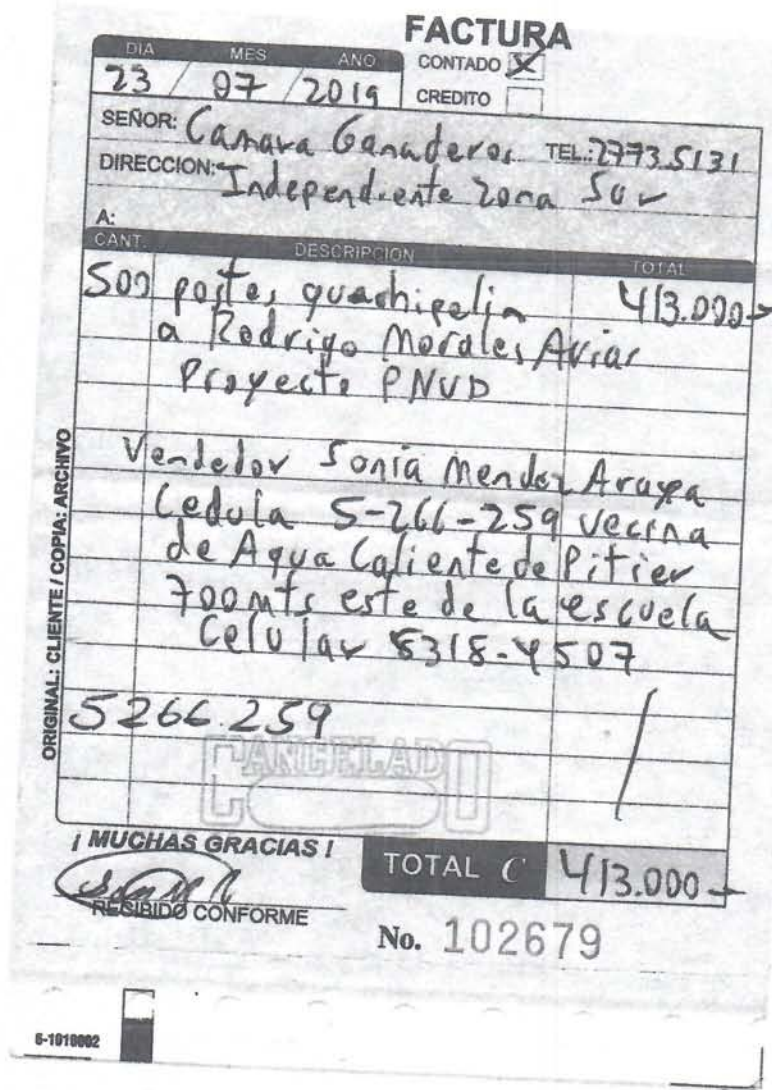 FACTURA
DIA MES AÑO
CONTADO X
23 / 07 / 2019
CREDITO
SEÑOR: Camara Ganaderos TEL.: 2773.5131
DIRECCION: Independiente Zona Sur
A:
CANT. DESCRIPCION TOTAL
500 postes guachipelin 413.000
a Rodrigo Morales Arias
Proyecto PNUD
Vendedor Sonia Mendez Araya
Cedula 5-266-259 vecina
de Agua Caliente de Pitier
700 mts este de la escuela
Celular 8318-4507
5266.259
CANCELADO
ORIGINAL: CLIENTE / COPIA: ARCHIVO
¡ MUCHAS GRACIAS !
TOTAL C 413.000
RESIBIDO CONFORME
No. 102679
6-1019002